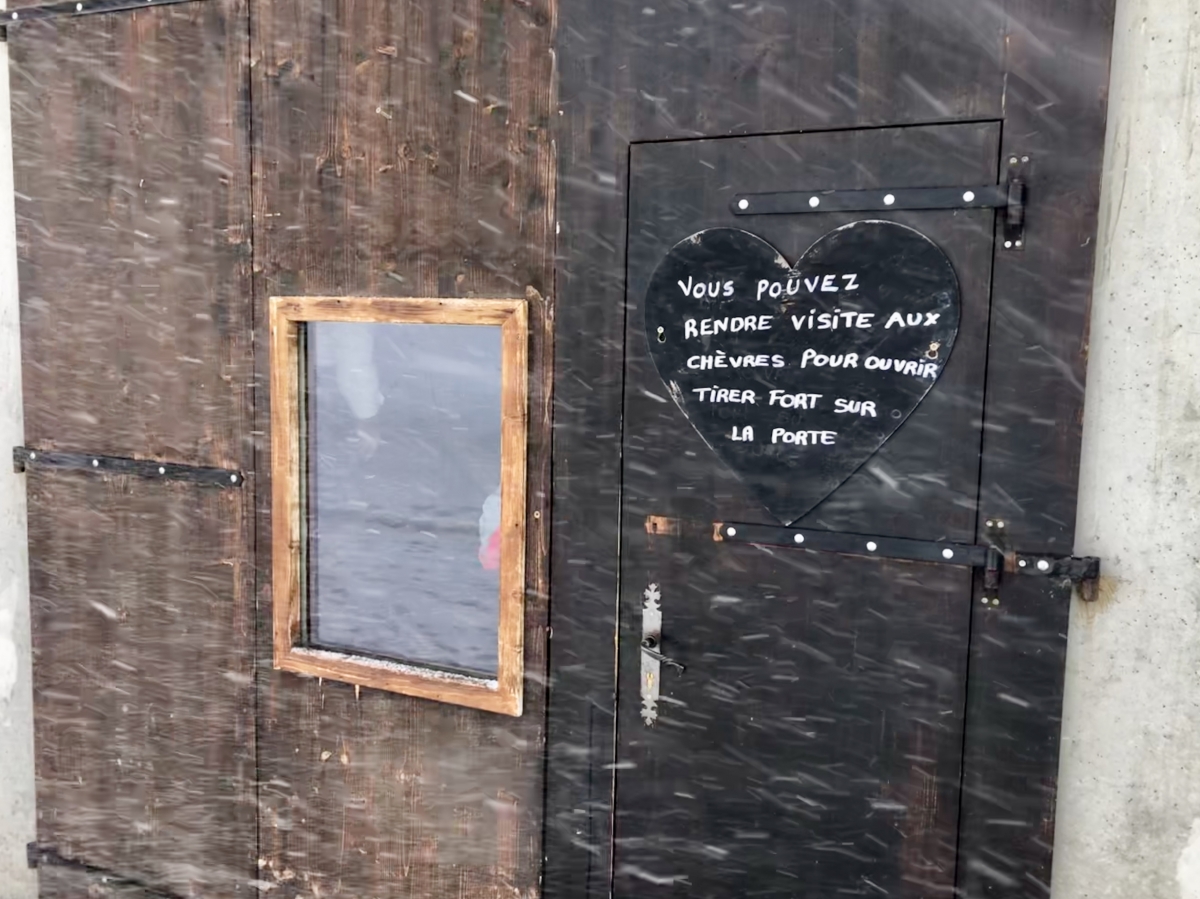 VOUS POUVEZ
RENDRE VISITE AUX
CHÈVRES POUR OUVRIR
TIRER FORT SUR
LA PORTE